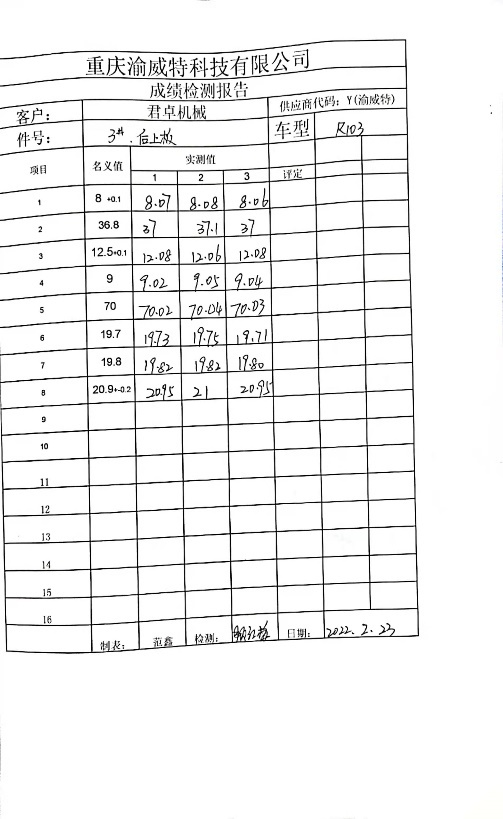 重庆渝威特科技有限公司
成绩检测报告
客户： 君卓机械 供应商代码：Y(渝威特)
件号： 3#.后上板 车型 R103
项目 名义值 实测值 评定
1 2 3
1 8 +0.1 8.07 8.08 8.06
2 36.8 37 37.1 37
3 12.5+0.1 12.08 12.06 12.08
4 9 9.02 9.05 9.04
5 70 70.02 70.04 70.03
6 19.7 19.73 19.75 19.71
7 19.8 19.82 19.82 19.80
8 20.9+-0.2 20.95 21 20.95
9
10
11
12
13
14
15
16
制表： 范鑫 检测： 日期： 2022.2.23